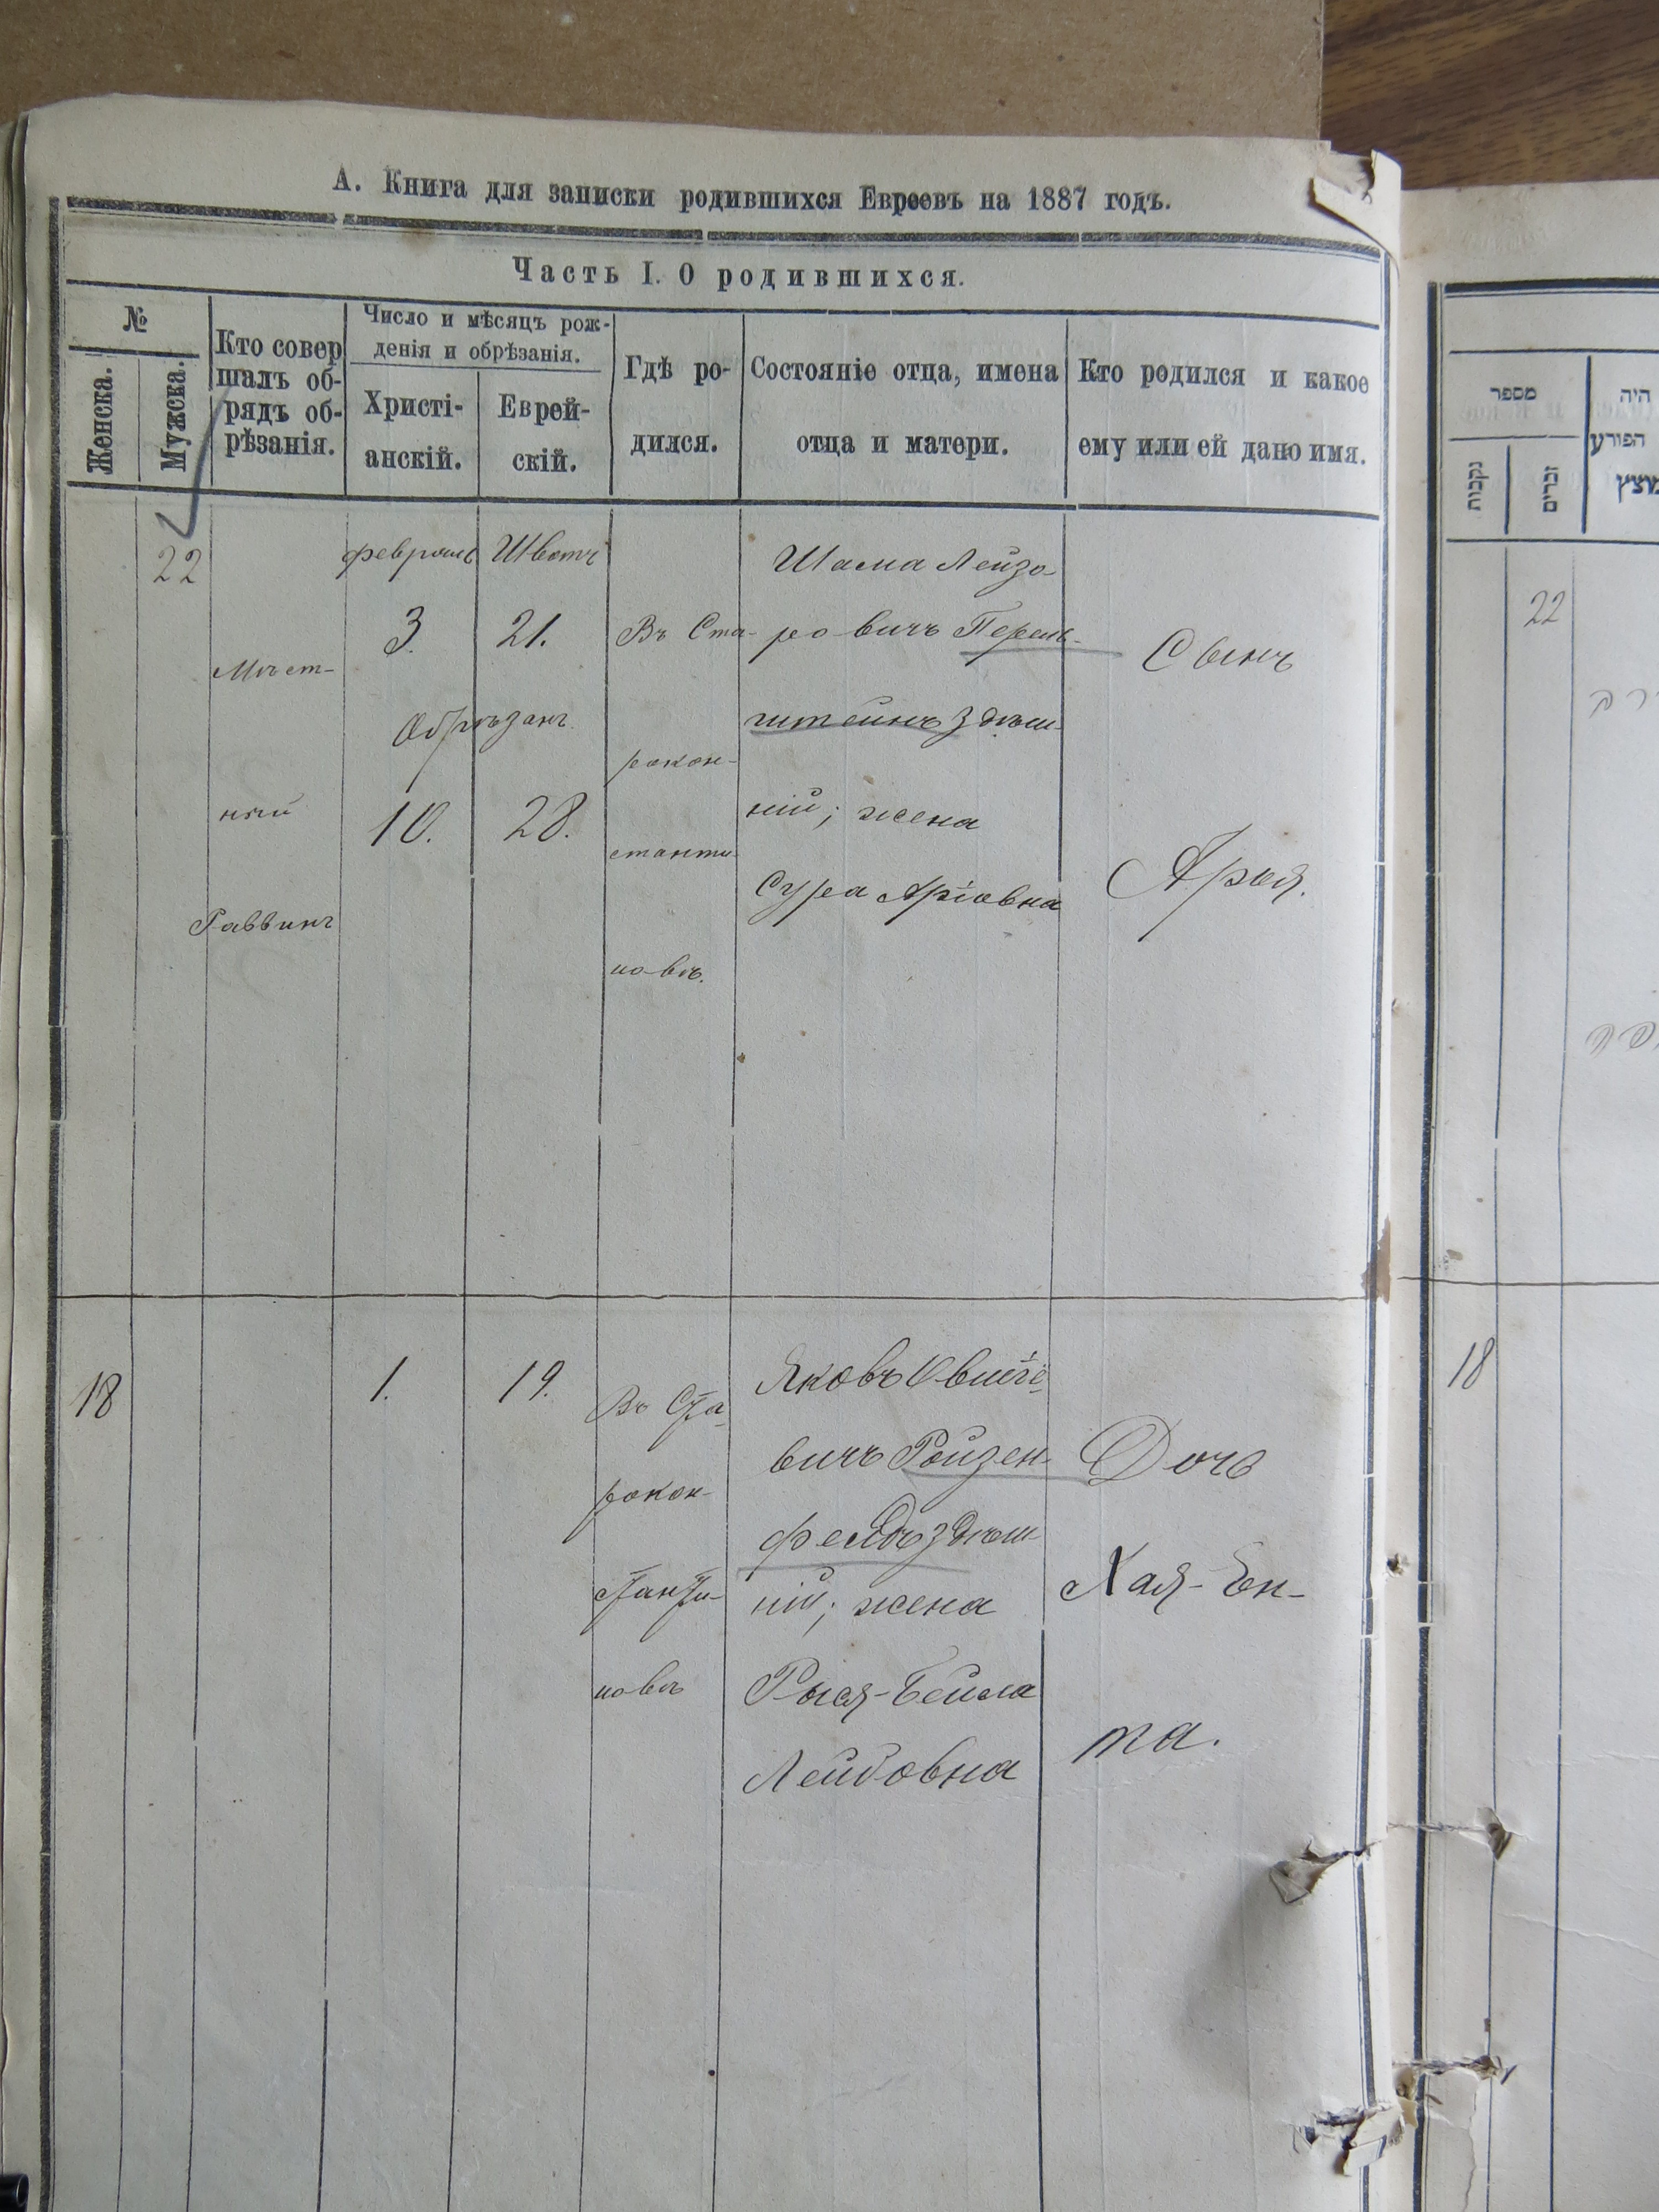 А. Книга для записки родившихся Евреевъ на 1887 годъ.
Часть I. О родившихся.
№
Женска.
Мужска.
Кто совер
шалъ об-
рядъ об-
рѣзанія.
Число и мѣсяцъ рож-
денія и обрѣзанія.
Христі-
анскій.
Еврей-
скій.
Гдѣ ро-
дился.
Состояніе отца, имена
отца и матери.
Кто родился и какое
ему или ей дано имя.
22
Мѣст-
ный
Раввинъ
февраль
3.
Шватъ
21.
Обрѣзанъ
10.
28.
Въ Ста-
рокон-
станти-
новѣ.
Шама Лейзо-
ровичъ Перель-
штейнъ здѣш-
ній; жена
Сура Аріовна
Сынъ
Арья.
18
1.
19.
Въ Ста-
рокон-
станти-
новѣ
Яковъ
вичъ Ройзен-
фельдъ здѣш-
ній; жена
Рыся-Бейла
Лейбовна
Дочь
Хая-Ен-
та.
מספר
נקבות
זכרים
היה
הפורע
22
18